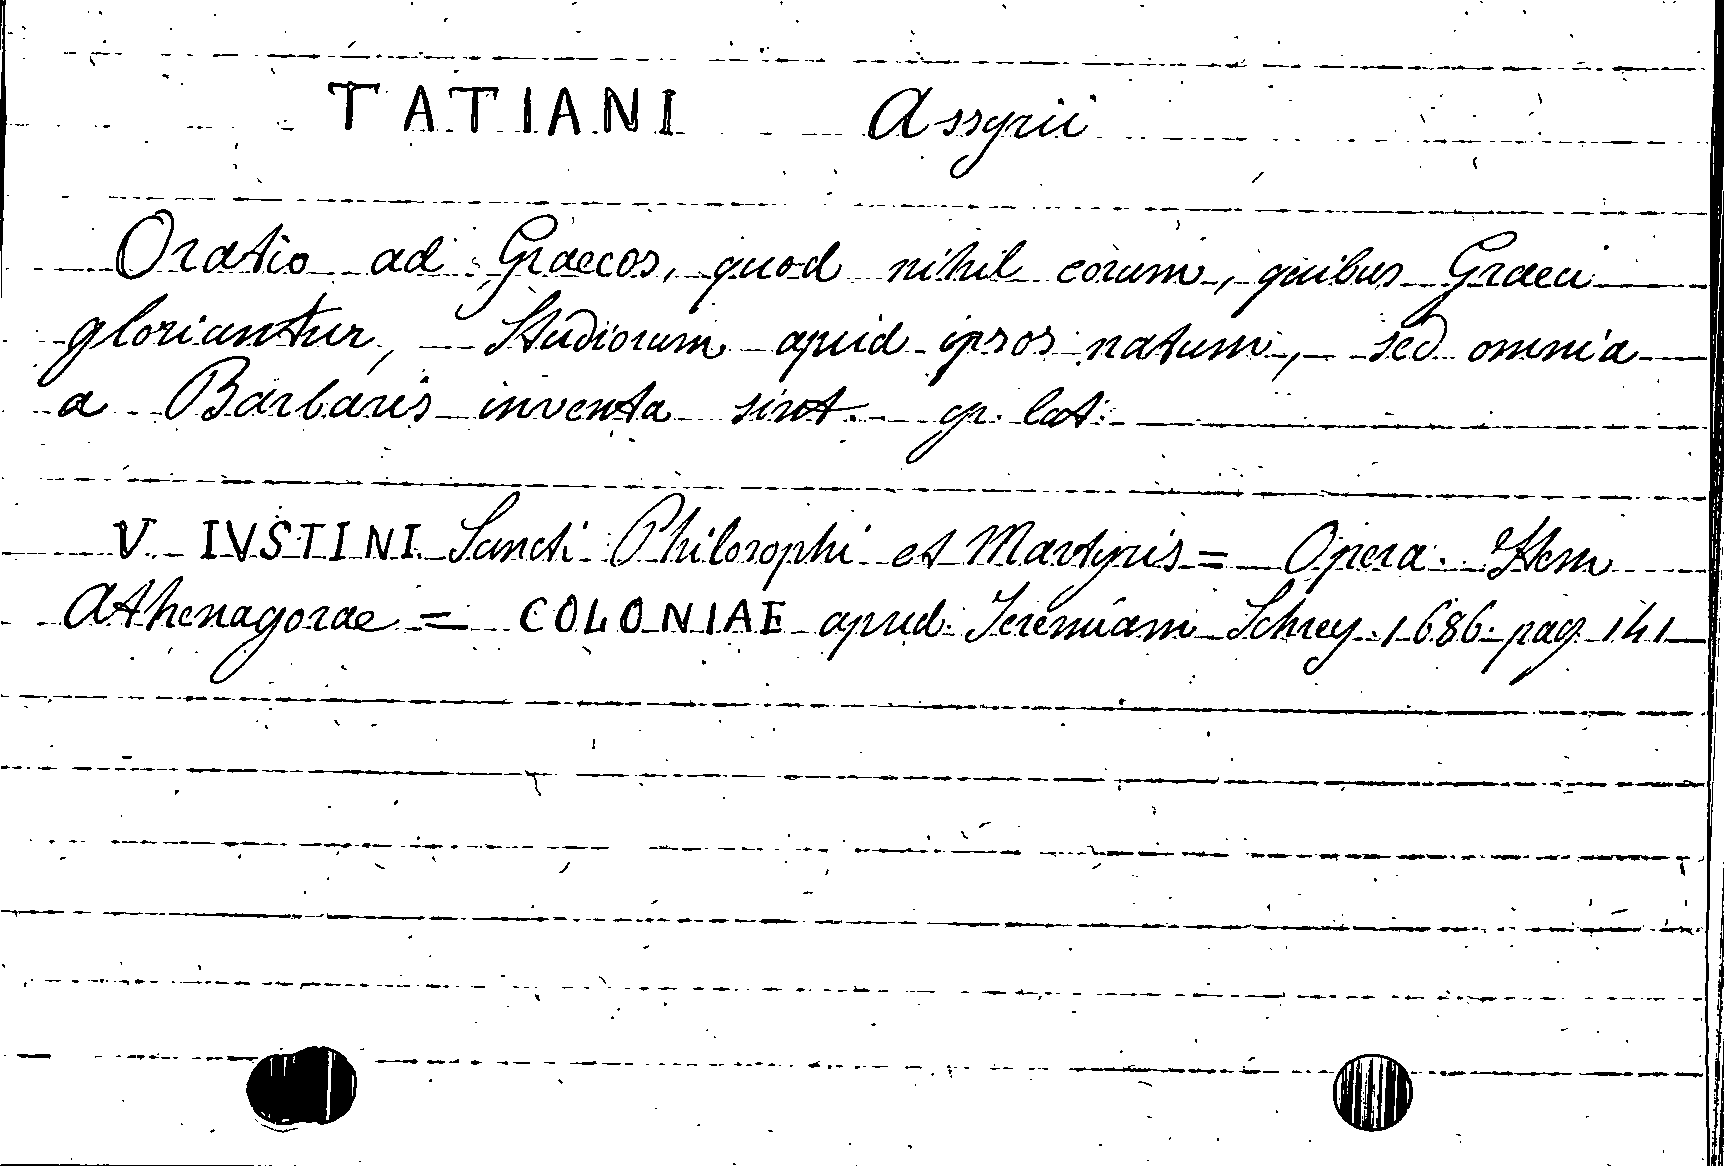 TATIANI Assyrii
Oratio ad Graecos, quod nihil eorum, quibus Graeci
gloriantur, Studiorum apud ipsos natum, sed omnia
a Barbaris inventa sint. gr. lat.
V IVSTINI Sancti Philosophi et Martyris = Opera. Item
Athenagorae = COLONIAE apud Jeremiam Schrey. 1686. pag. 141